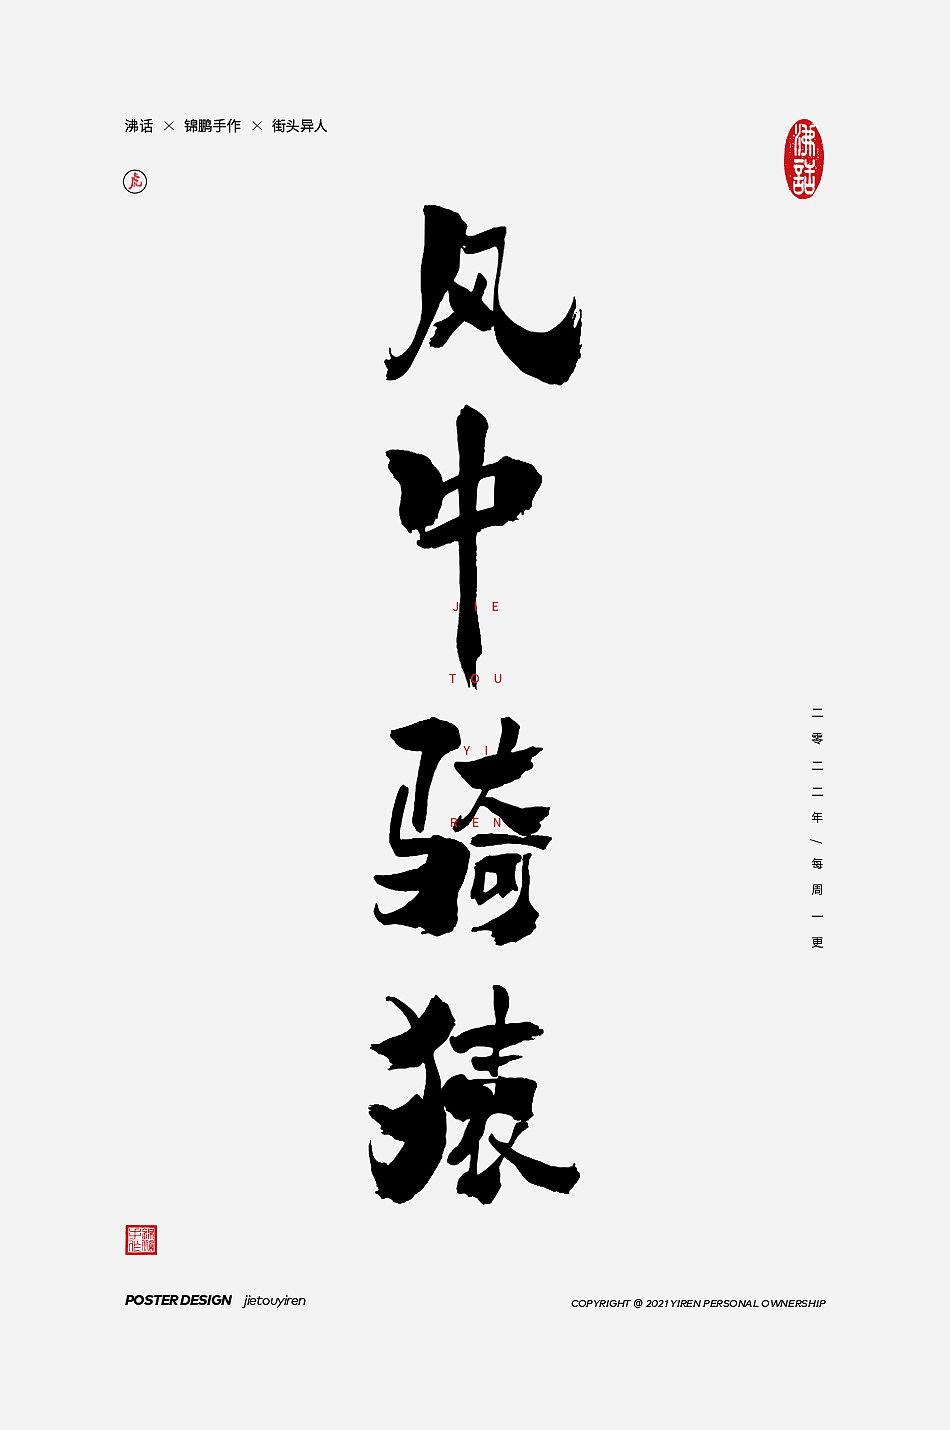 沸话 × 锦鹏手作 × 街头异人
虎
沸話
风中骑猿
JIE
TOU
YI
REN
二零二二年/每周一更
锦鹏手作
POSTER DESIGN jietouyiren
COPYRIGHT @ 2021 YIREN PERSONAL OWNERSHIP